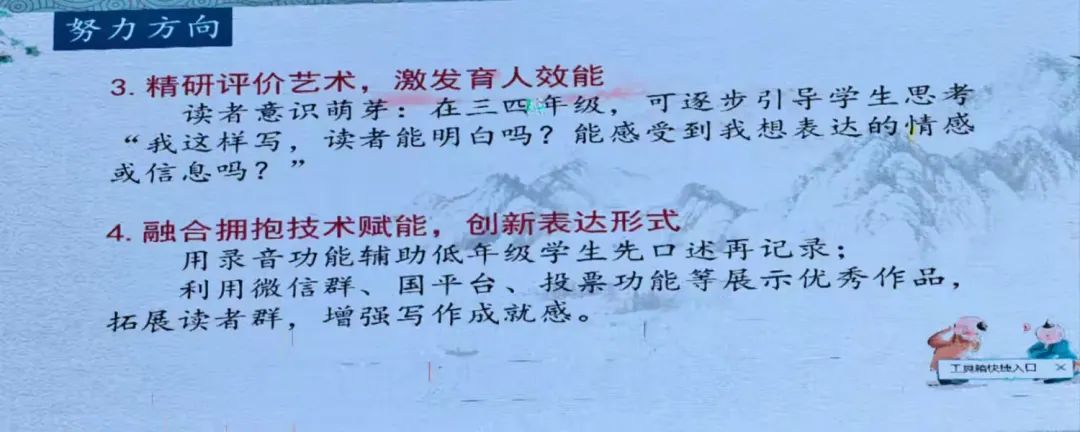 努力方向
3. 精研评价艺术，激发育人效能
读者意识萌芽：在三四年级，可逐步引导学生思考
“我这样写，读者能明白吗？能感受到我想表达的情感
或信息吗？”
4. 融合拥抱技术赋能，创新表达形式
用录音功能辅助低年级学生先口述再记录；
利用微信群、国平台、投票功能等展示优秀作品，
拓展读者群，增强写作成就感。
工具箱快捷入口 ×